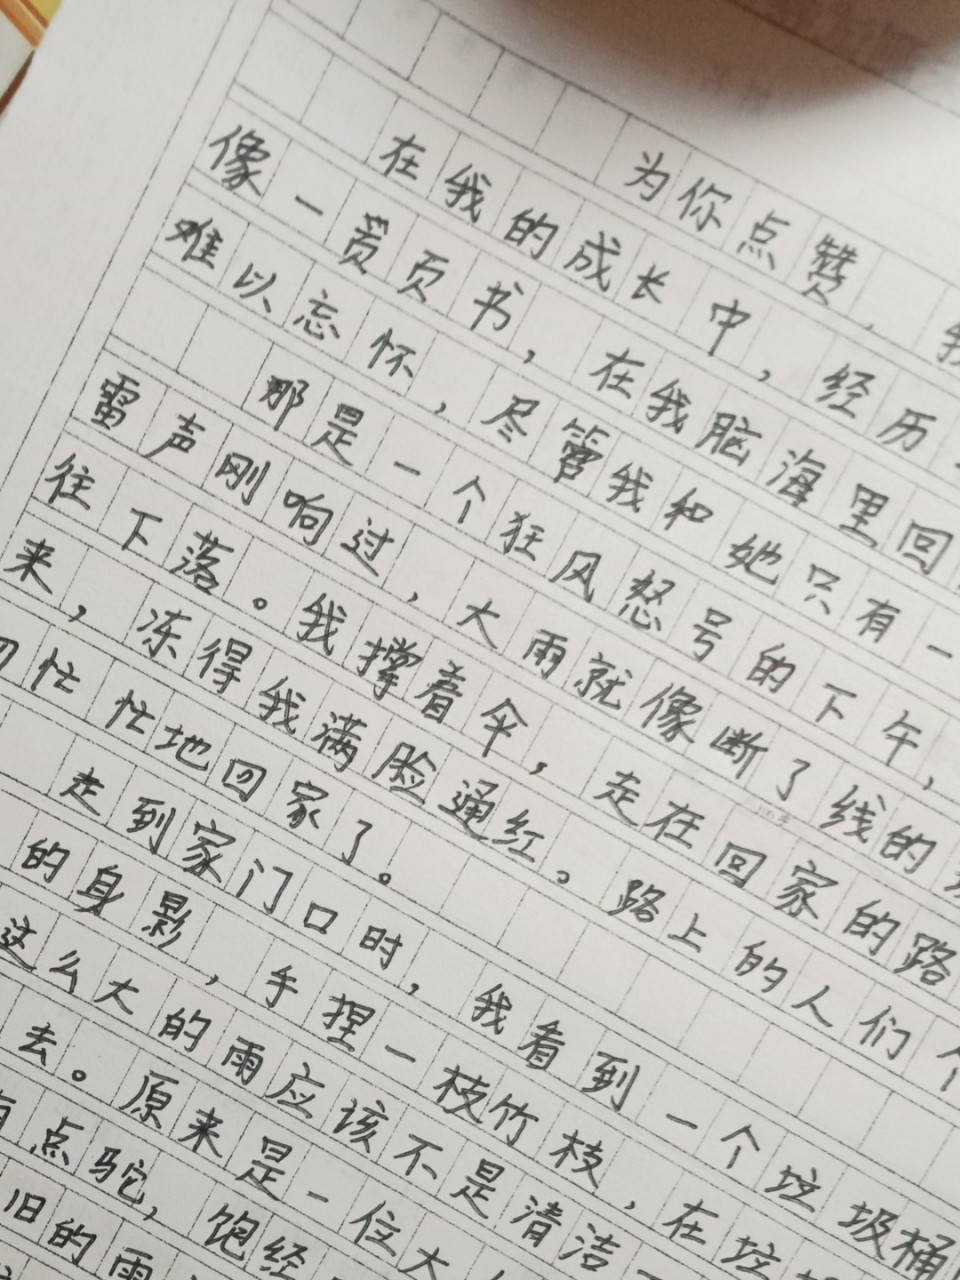 为你点赞
在我的成长中，经历
像一页书，在我脑海里回
难以忘怀，尽管我和她只有一
那是一个狂风怒号的下午，
雷声刚响过，大雨就像断了线的
往下落。我撑着伞，走在回家的路
来，冻得我满脸通红。路上的人们个
忙忙地回家了。
走到家门口时，我看到一个垃圾桶
的身影，手捏一枝竹枝，在垃
这么大的雨应该不是清洁
去。原来是一位大
点驼，饱经
旧的雨